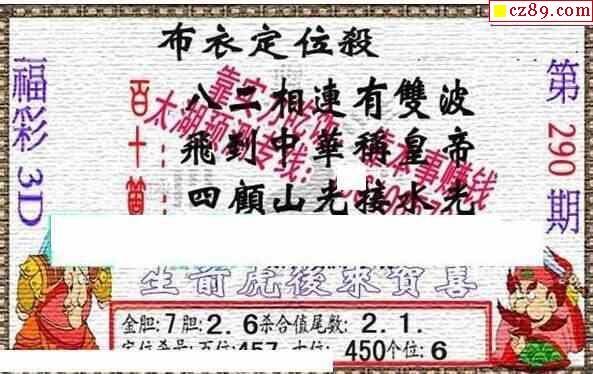 cz89.com
布衣定位殺
福彩3D
第290期
百：八二相連有雙波
十：飛到中華稱皇帝
四顧山光接水光
靠实力吃饭
太湖预测专线：
本事赚钱
生前虎後來賀喜
金胆:7胆:2.6杀合值尾数:2.1.
定位杀号:百位:457 十位:450个位:6